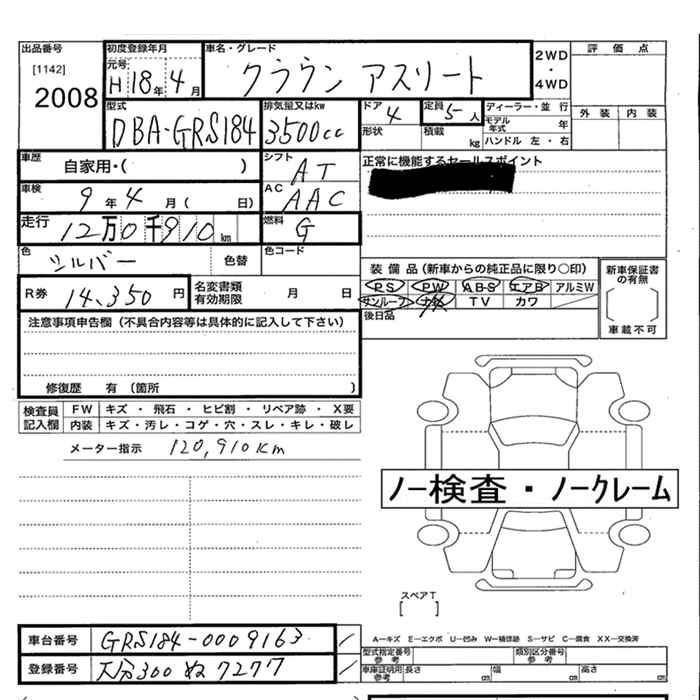 出品番号
[1142]
2008
初度登録年月
元号
H 18年 4月
車名・グレード
クラウン アスリート
2WD
・
4WD
評 価 点
外 装 内 装
型式
DBA-GRS184
排気量又はkw
3500cc
ドア
4
定員
5人
形状
積載
kg
ディーラー・並 行
モデル年式
年
ハンドル 左・右
車歴
自家用・( )
シフト
AT
正常に機能するセールスポイント
車検
9年 4月( 日)
AC
AAC
走行
12万0千910km
燃料
G
色
シルバー
色替
色コード
R券
14,350円
名変書類有効期限
月 日
装 備 品(新車からの純正品に限り〇印)
PS PW ABS エアB アルミW
サンルーフ ナビ TV カワ
後日品
新車保証書の有無
車載不可
注意事項申告欄(不具合内容等は具体的に記入して下さい)
修復歴 有(箇所 )
検査員記入欄
FW キズ・飛石・ヒビ割・リペア跡・X要
内装 キズ・汚レ・コゲ・穴・スレ・キレ・破レ
メーター指示 120,910km
ノー検査・ノークレーム
スペアT
[ ]
車台番号 GRS184-0009163
登録番号 大分300 ぬ7277
A―キズ E―エクボ U―凹み W―補修跡 S―サビ C―腐食 XX―交換済
型式指定番号
参考
類別区分番号
参考
車庫証明用
参考
長さ cm 幅 cm 高さ cm